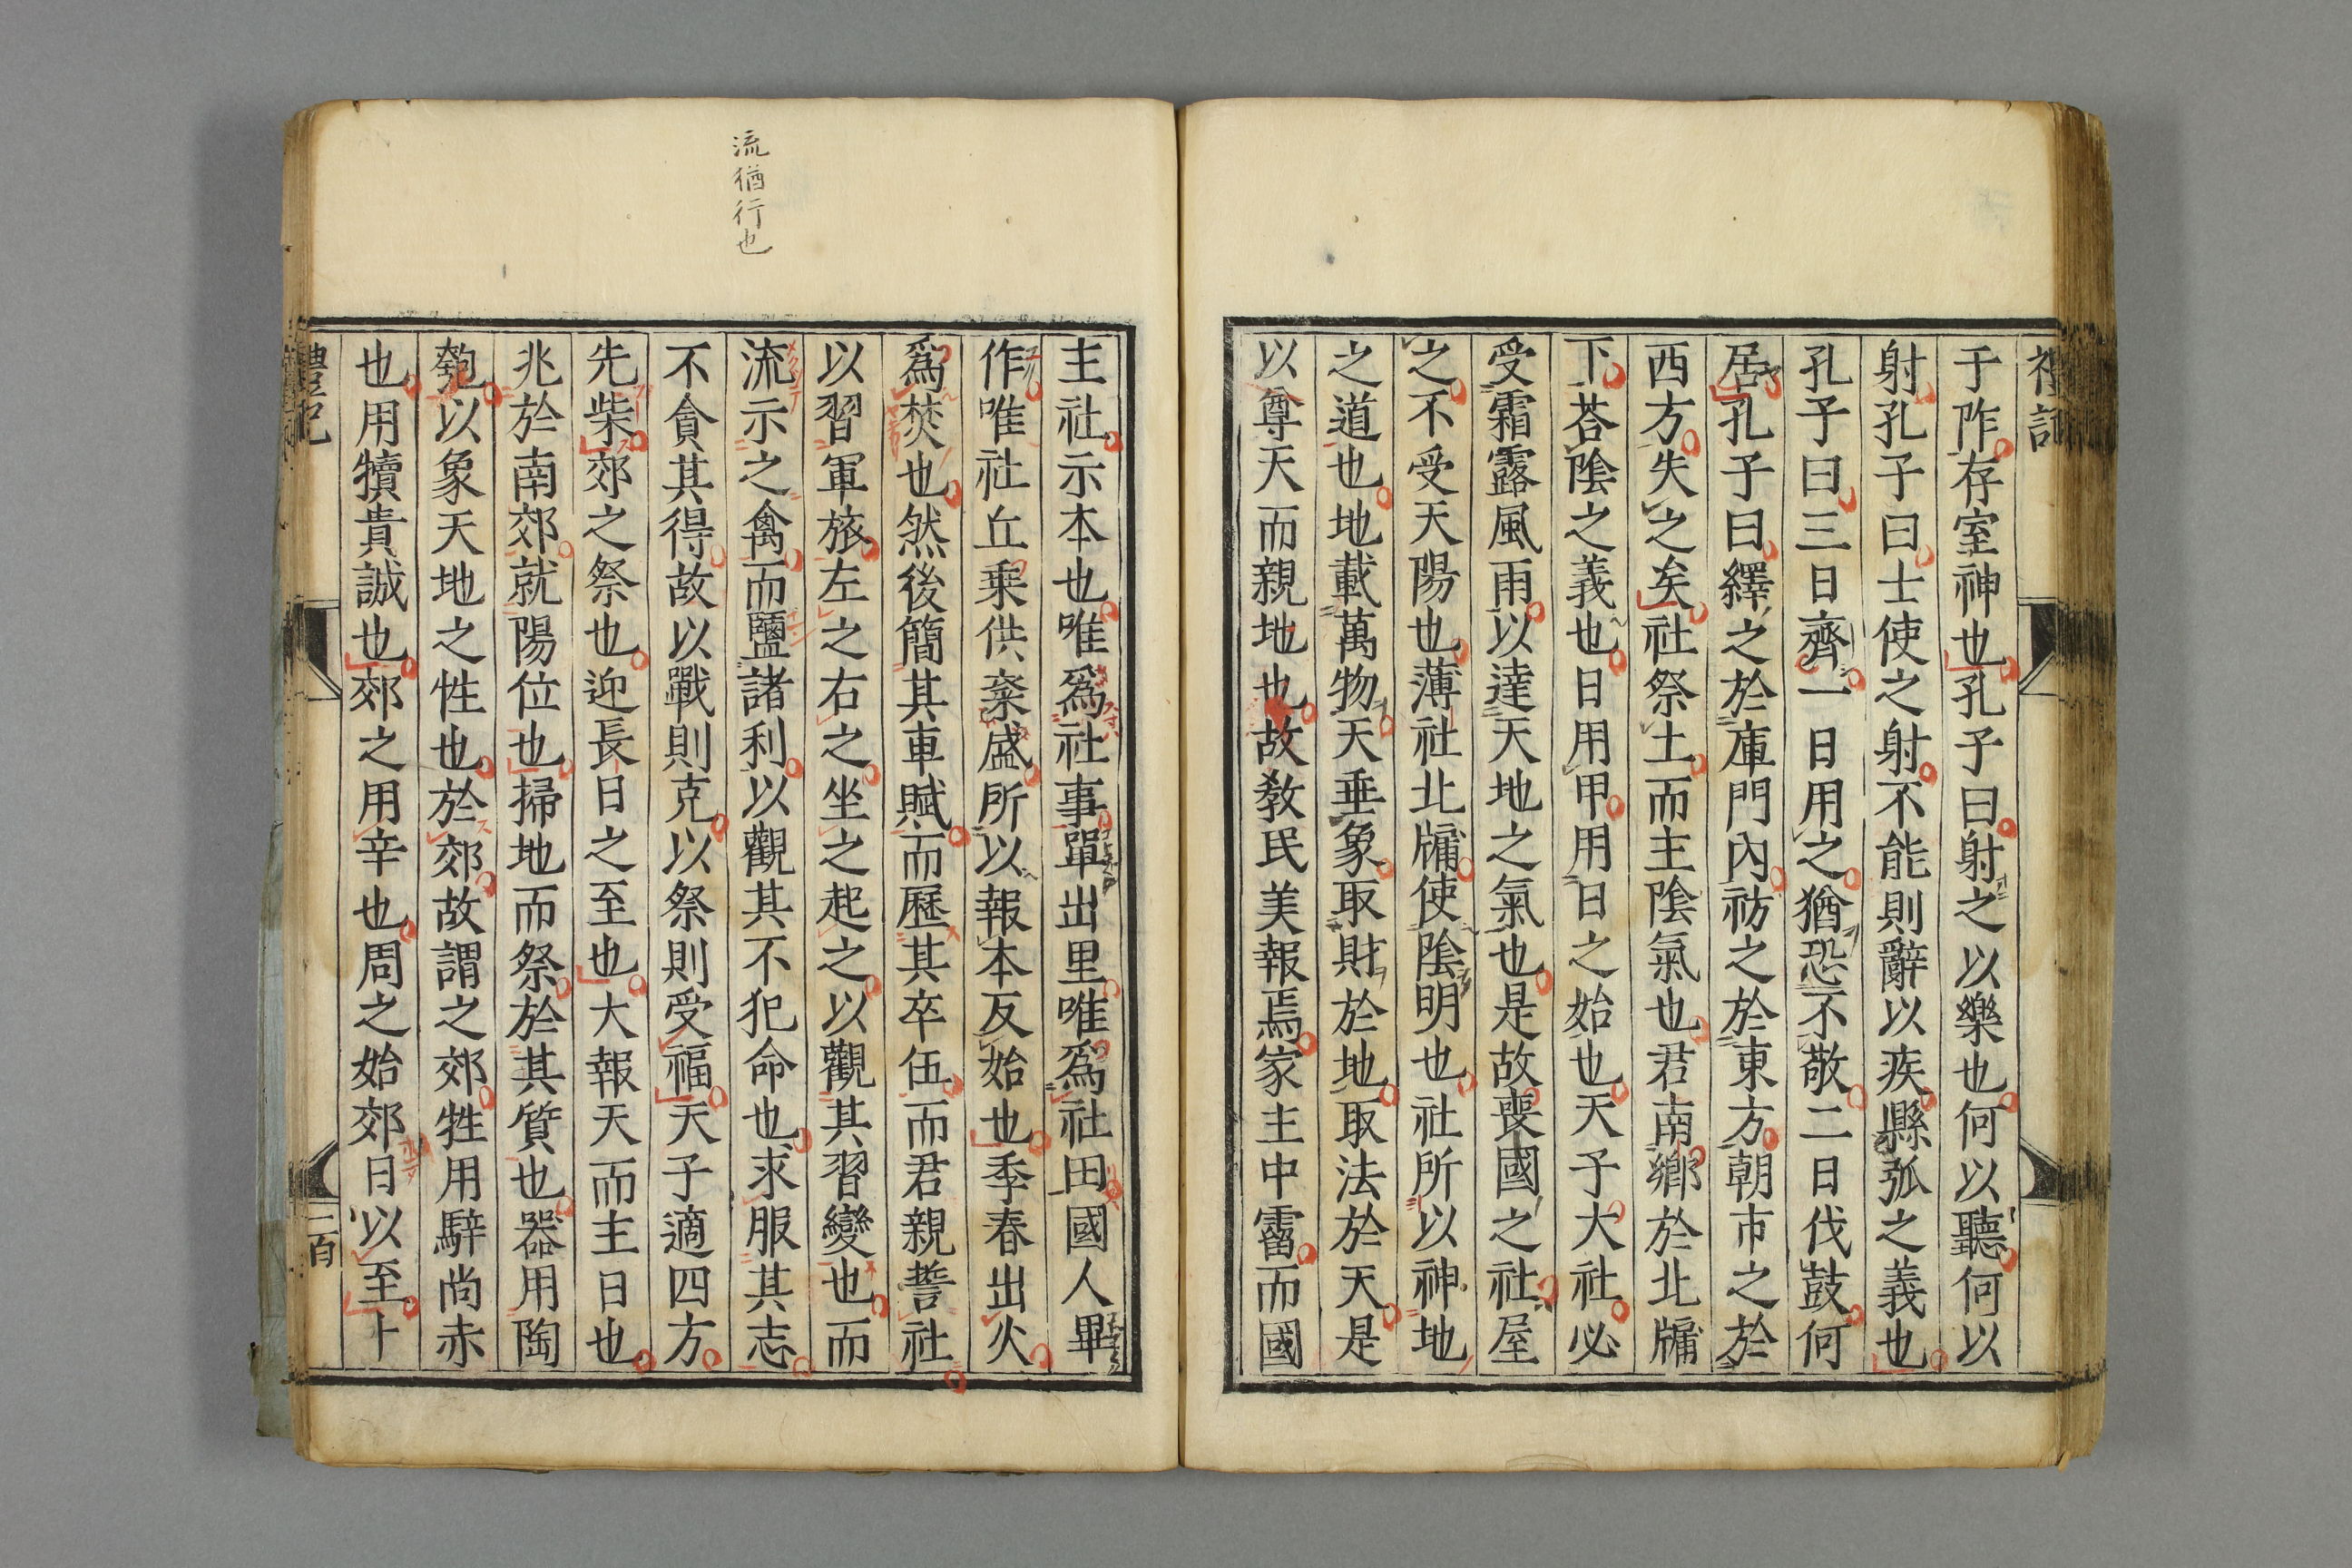 禮記
于阼存室神也孔子曰射之以樂也何以聽何以
射孔子曰士使之射不能則辭以疾縣弧之義也
孔子曰三日齊一日用之猶恐不敬二日伐鼓何
居孔子曰繹之於庫門內祊之於東方朝市之於
西方失之矣社祭土而主陰氣也君南鄉於北牖
下荅陰之義也日用甲用日之始也天子大社必
受霜露風雨以達天地之氣也是故喪國之社屋
之不受天陽也薄社北牖使陰明也社所以神地
之道也地載萬物天垂象取財於地取法於天是
以尊天而親地也故教民美報焉家主中霤而國
流猶行也
主社示本也唯爲社事單出里唯爲社田國人畢
作唯社丘乗供粢盛所以報本反始也季春出火
爲焚也然後簡其車賦而歷其卒伍而君親誓社
以習軍旅左之右之坐之起之以觀其習變也而
流示之禽而鹽諸利以觀其不犯命也求服其志
不貪其得故以戰則克以祭則受福天子適四方
先柴郊之祭也迎長日之至也大報天而主日也
兆於南郊就陽位也掃地而祭於其質也器用陶
匏以象天地之性也於郊故謂之郊牲用騂尚赤
也用犢貴誠也郊之用辛也周之始郊日以至卜
禮記
二百